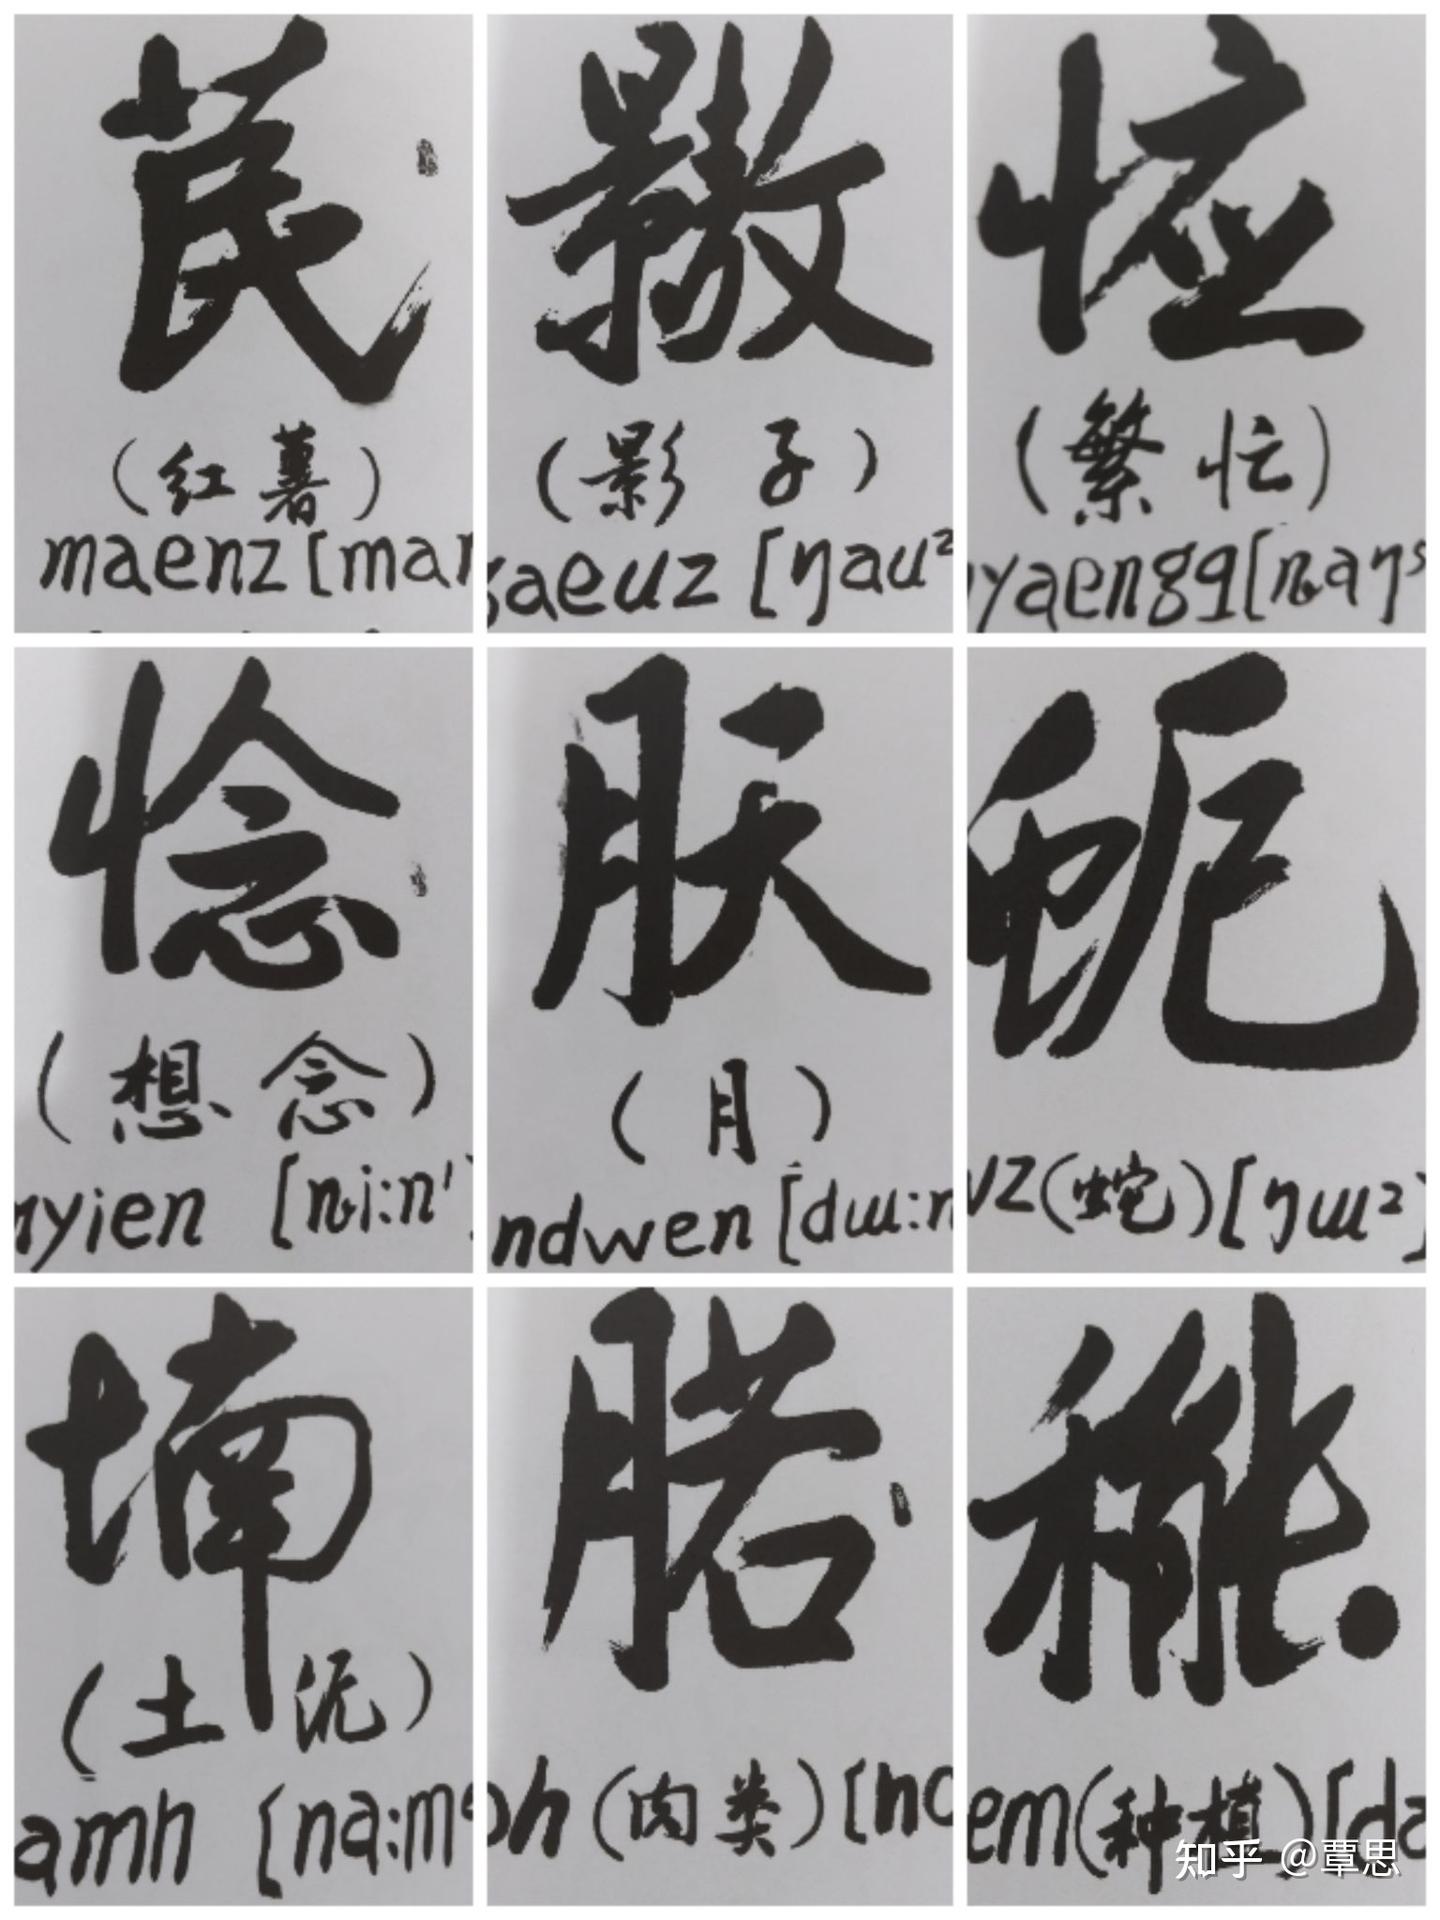 苠
(红薯)
maenz [mar
(影子)
gaeuz [ŋau²
(繁忙)
yaengq [ȵaŋ⁵
惗
(想念)
nyien [ȵi:n¹]
肰
(月)
ndwen [dɯ:n
蚅
wz (蛇) [ŋɯ²]
堛
(土泥)
amh [na:m⁶
腤
oh (肉类) [no
em (种植) [da
知乎 @覃思